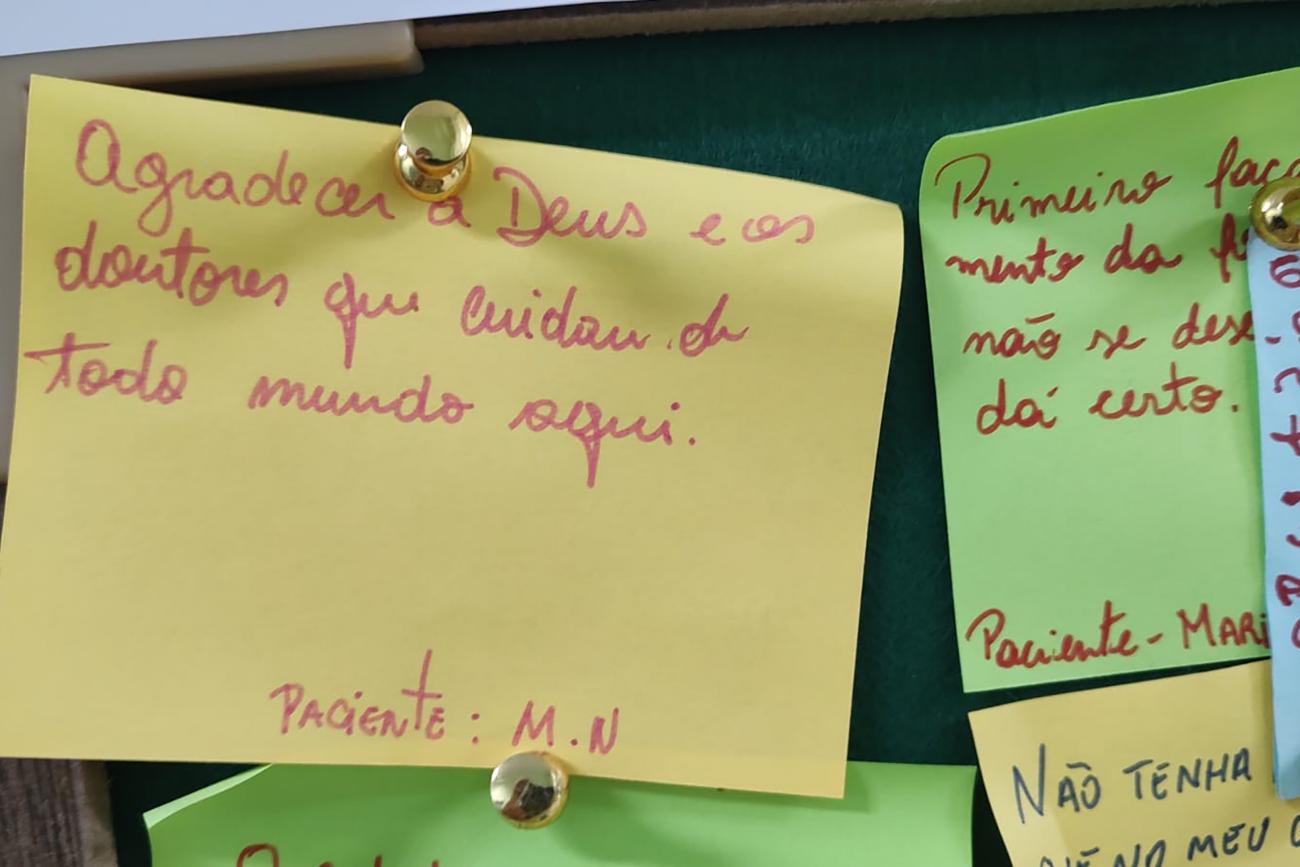 Agradecer a Deus e aos
doutores que cuidam de
todo mundo aqui.
PACIENTE: M.N
Primeiro
mento da
não se
dá certo.
Paciente - MARI
NÃO TENHA
NO MEU